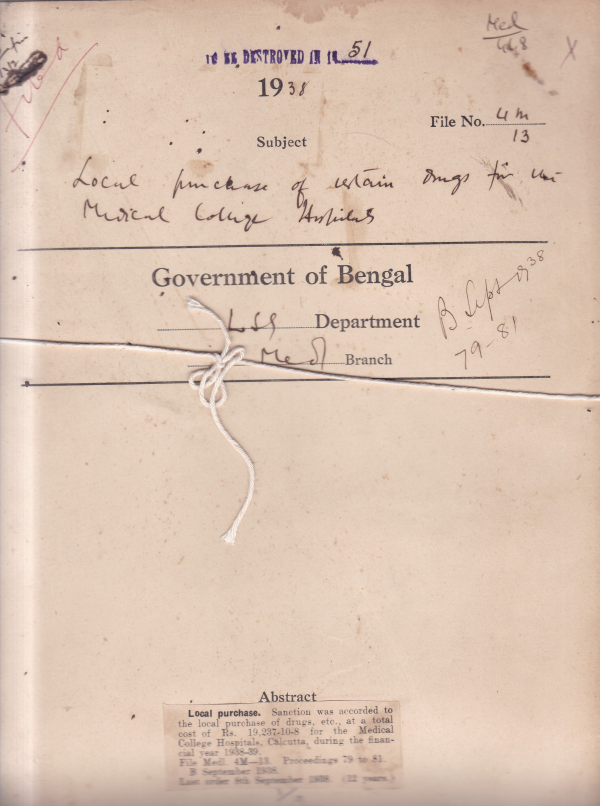 Med
448
TO BE DESTROYED IN 1951
1938
Filed
File No. 4M
13
Subject
Local purchase of certain drugs for the
Medical College Hospitals
Government of Bengal
LSG Department
Medl Branch
B. Sept 1938
79-81
Abstract
Local purchase. Sanction was accorded to
the local purchase of drugs, etc., at a total
cost of Rs. 19,237-10-8 for the Medical
College Hospitals, Calcutta, during the finan-
cial year 1938-39.
File Medl. 4M—13. Proceedings 79 to 81
B September 1938.
Last order 8th September 1938. (12 years.)